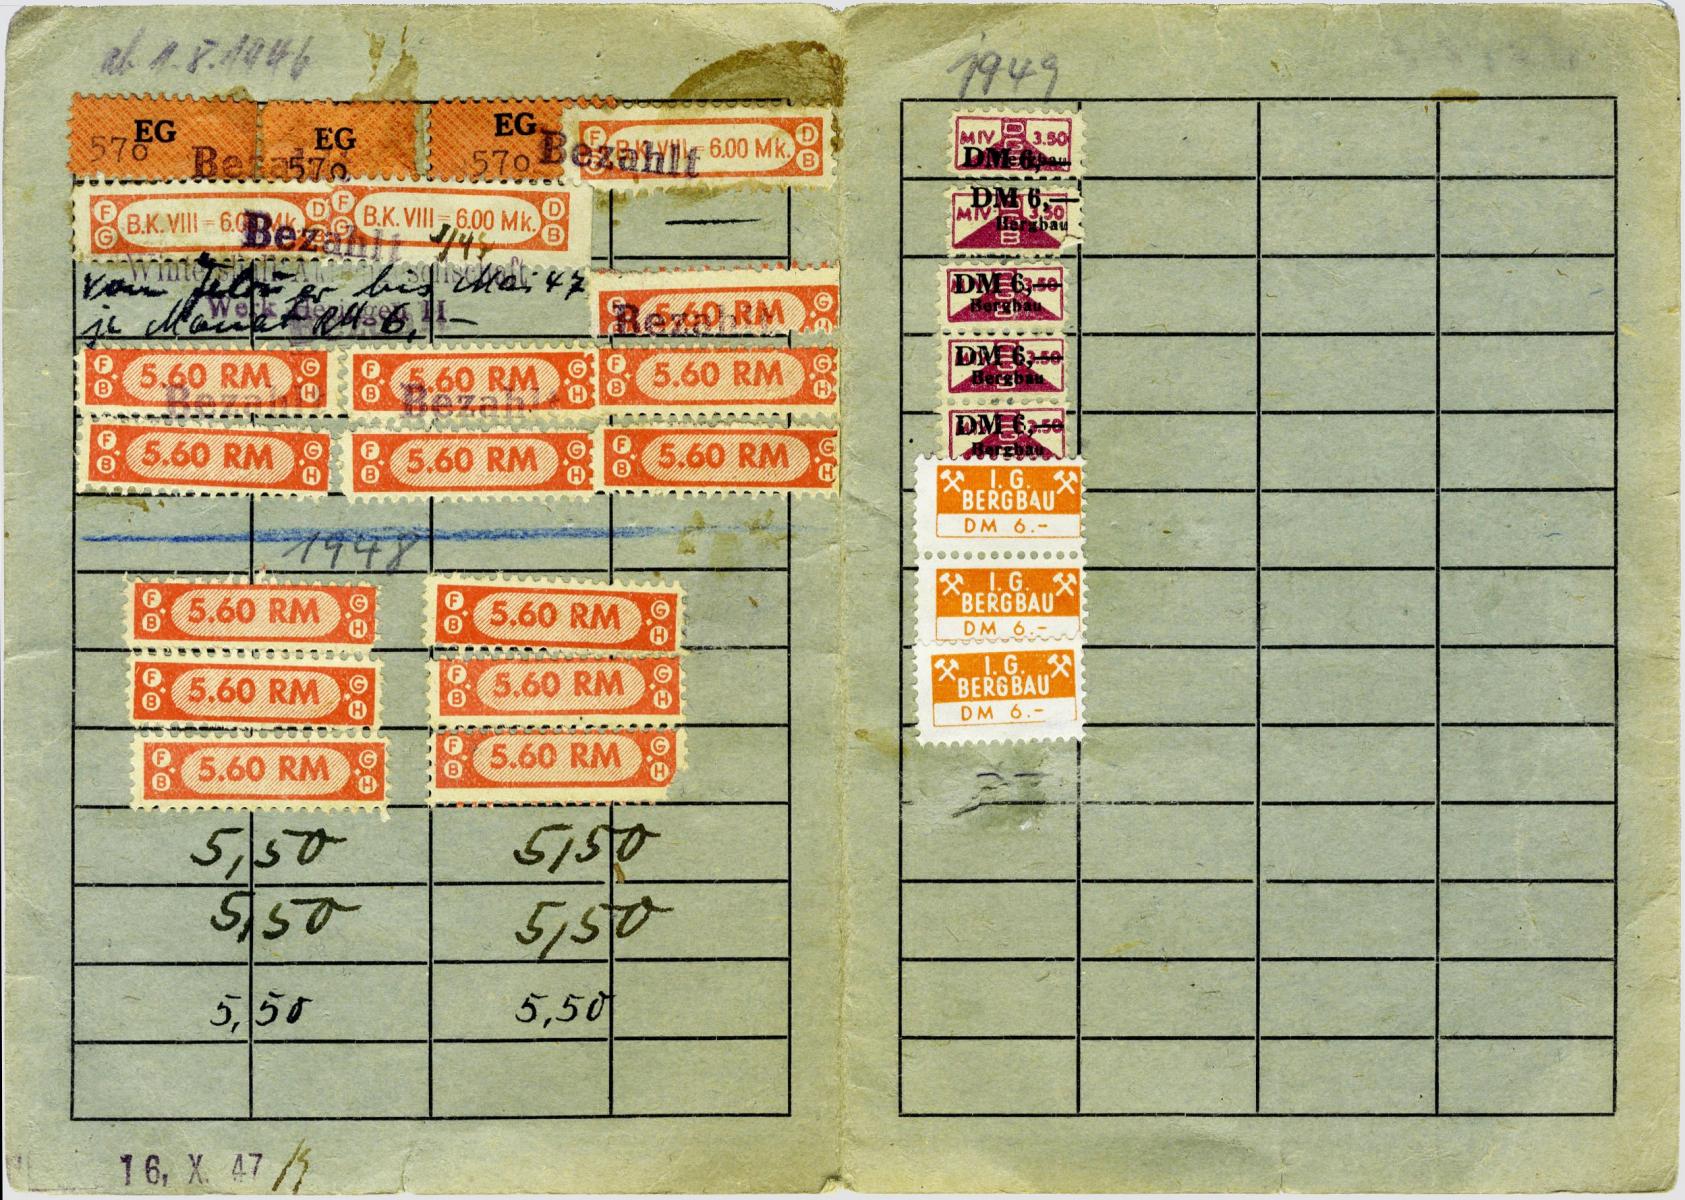 ab 1.8.1946
EG
570
EG
570
EG
570
Bezahlt
Bezahlt
F D
G B
B.K. VIII = 6.00 Mk.
F D
G B
B.K. VIII = 6.00 Mk.
F D
G B
B.K. VIII = 6.00 Mk.
Bezahlt
vom Februar bis Mai 47
je Monat RM 6,—
F G
B H
5.60 RM
Bezahlt
F B 5.60 RM G H
F B 5.60 RM G H
F B 5.60 RM G H
Bezahlt
Bezahlt
F B 5.60 RM G H
F B 5.60 RM G H
F B 5.60 RM G H
1948
F B 5.60 RM G H
F B 5.60 RM G H
F B 5.60 RM G H
F B 5.60 RM G H
F B 5.60 RM G H
F B 5.60 RM G H
5,50 5,50
5,50 5,50
5,50 5,50
16. X. 47
1949
MIV 3.50
DM 6,—
Bergbau
DM 6,—
MIV 3.50
Bergbau
DM 6,— 3.50
Bergbau
DM 6,— 3.50
Bergbau
DM 6,— 3.50
Bergbau
I. G.
BERGBAU
DM 6.-
I. G.
BERGBAU
DM 6.-
I. G.
BERGBAU
DM 6.-